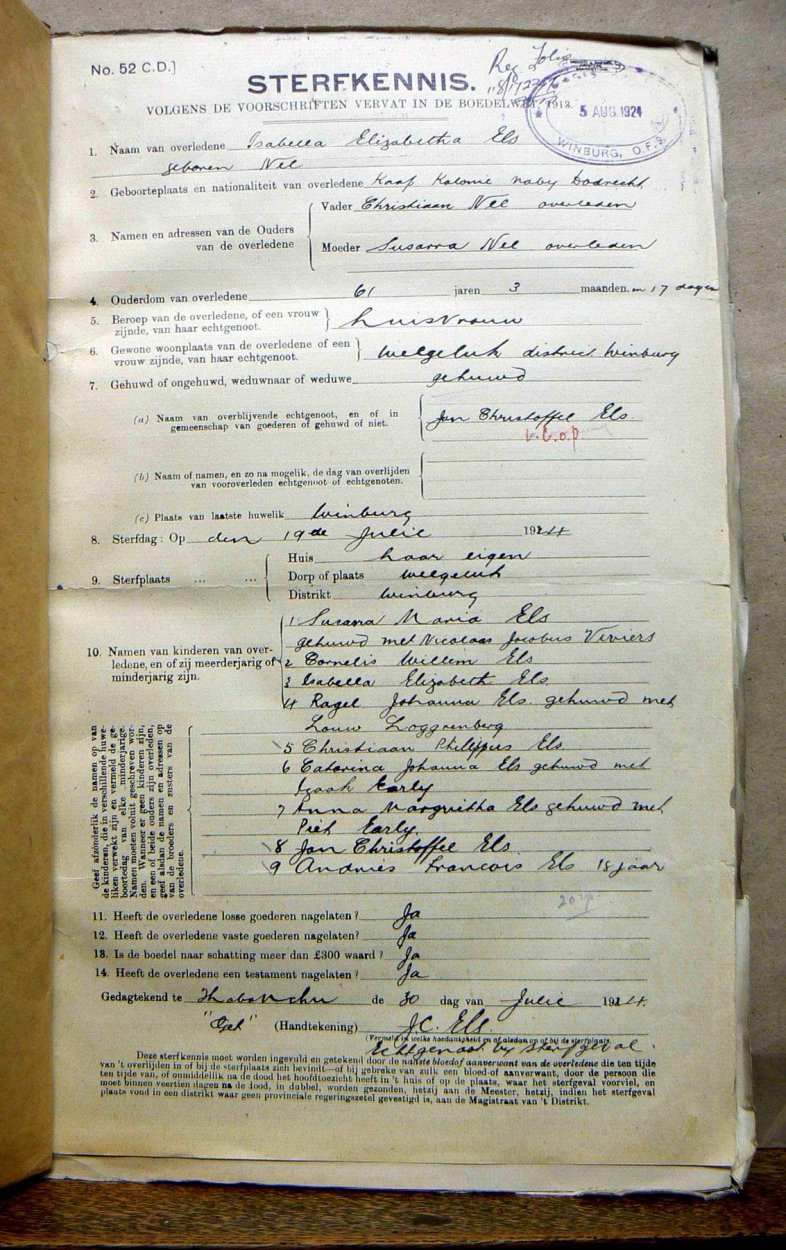 No. 52 C.D.]
STERFKENNIS.
VOLGENS DE VOORSCHRIFTEN VERVAT IN DE BOEDELWET 1913.
5 AUG 1924
WINBURG, O.F.S.
1. Naam van overledene Isabella Elizabetha Els
geboren Nel
2. Geboorteplaats en nationaliteit van overledene Kaap Kolonie naby Dodrecht
3. Namen en adressen van de Ouders van de overledene
Vader Christiaan Nel overleden
Moeder Susarra Nel overleden
4. Ouderdom van overledene 61 jaren 3 maanden. en 17 dagen
5. Beroep van de overledene, of een vrouw zijnde, van haar echtgenoot. huisvrouw
6. Gewone woonplaats van de overledene of een vrouw zijnde, van haar echtgenoot. Welgeluk district Winburg
7. Gehuwd of ongehuwd, weduwnaar of weduwe gehuwd
(a) Naam van overblijvende echtgenoot, en of in gemeenschap van goederen of gehuwd of niet. Jan Christoffel Els
(b) Naam of namen, en zo na mogelik, de dag van overlijden van vooroverleden echtgenoot of echtgenoten.
(c) Plaats van laatste huwelik Winburg
8. Sterfdag: Op den 19de Julie 1924
9. Sterfplaats ... ...
Huis haar eigen
Dorp of plaats Welgeluk
Distrikt Winburg
10. Namen van kinderen van overledene, en of zij meerderjarig of minderjarig zijn.
1 Susarra Maria Els
gehuwd met Nicolaas Jacobus Viviers
2 Cornelis Willem Els
3 Isabella Elizabeth Els
4 Ragel Johanna Els gehuwd met
Louw Loggrenberg
5 Christiaan Philippus Els
6 Catarina Johanna Els gehuwd met
Izaak Early
7 Anna Margritha Els gehuwd met
Piet Early
8 Jan Christoffel Els
9 Andries Francois Els 18 jaar
Geef afzonderlik de namen op van
de kinderen, die in verschillende huwe-
liken verwekt zijn en vermeld de ge-
boortedag van elke minderjarige.
Namen moeten voluit geschreven wor-
den. Wanneer er geen kinderen zijn,
en een of beide ouders zijn overleden,
geef alsdan de namen en adressen op
van de broeders en zusters van de
overledene.
11. Heeft de overledene losse goederen nagelaten? Ja
12. Heeft de overledene vaste goederen nagelaten? Ja
13. Is de boedel naar schatting meer dan £300 waard? Ja
14. Heeft de overledene een testament nagelaten? Ja
Gedagtekend te Thabanchu de 30 dag van Julie 1924.
"Get" (Handtekening) J.C. Els.
(Vermeld in welke hoedanigheid en of alsdan op of bij sterfplaats.
Echtgenoot by sterfgeval.
Deze sterfkennis moet worden ingevuld en getekend door de naaste bloedof aanverwant van de overledene die ten tijde
van 't overlijden in of bij de sterfplaats zich bevindt—of bij gebreke van zulk een bloed-of aanverwant, door de persoon die
ten tijde van, of onmiddellik na de dood het hoofdtoezicht heeft in 't huis of op de plaats, waar het sterfgeval voorviel, en
moet binnen veertien dagen na de dood, in dubbel, worden gezonden, hetzij aan de Meester, hetzij, indien het sterfgeval
plaats vond in een distrikt waar geen provinciale regeringszetel gevestigd is, aan de Magistraat van 't Distrikt.